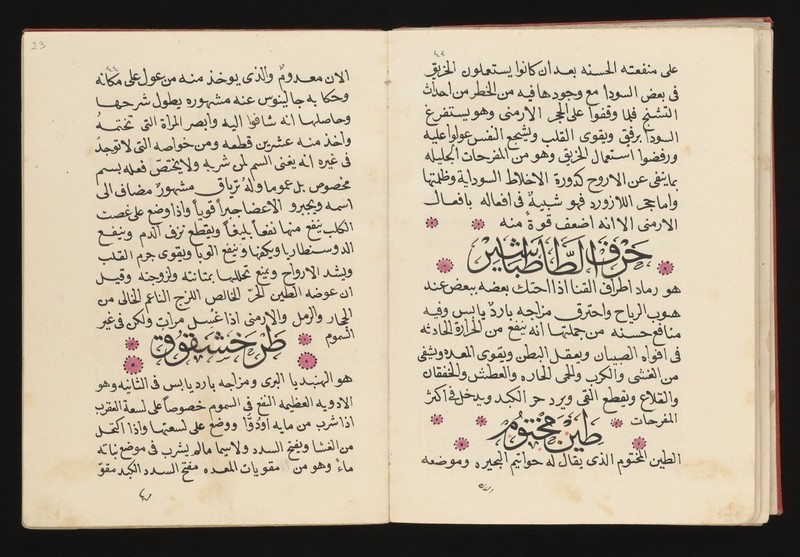 على منفعته الحسنه بعد ان كانوا يستعلون الخربق
فى بعض السودا مع وجودها فيه من الخطر من احداث
التشنج فلما وقفوا على الحجر الارمنى وهو يستفرغ
السودا برفق ويقوى القلب ويشجع النفس عولوا عليه
ورفضوا استعمال الخربق وهو من المفرحات الجليله
بما ينفى عن الاروح كدورة الاخلاط السوداية وظلمتها
واما حجر اللازورد فهو شبيه فى افعاله بافعال
الارمنى الا انه اضعف قوة منه
حرف الطا طباشير
هو رماد اطراف القنا اذا احتك بعضه ببعض عند
هبوب الرياح واحترق مزاجه بارد يابس وفيه
منافع حسنه من جملتها انه ينفع من الحرارة الحادثه
فى افواه الصبيان ويعقل البطن ويقوى المعده ويشفى
من الغشى والكرب والحمى الحاره والعطش والخفقان
والقلاع ويقطع القى ويبرد حر الكبد ويدخل فى اكثر
المفرحات
طين مختوم
الطين المختوم الذى يقال له خواتيم البحيره وموضعه
23
الان معدوم والذى يوخذ منه من عول على مكانه
وحكا به جالينوس عنه مشهوره يطول شرحها
وحاصلها انه سافر اليه وابصر المراة التى تختمه
واخذ منه عشرين قطعه ومن خواصه التى لا توجد
فى غيره انه يغنى السم لمن شربه ولا يختص فعله بسم
مخصوص بل عموما وله ترياق مشهور مضاف الى
اسمه ويجبر الاعضا جبرا قويا واذا وضع على عضة
الكلب ينفع منها نفعا بليغا ويقطع نزف الدم وينفع
الدوسنطاريا وينفع الوبا ويقوى جرم القلب
ويشد الارواح ويمنع تحللها بمتانته ولزوجته وقيل
ان عوضه الطين الحر الخالص اللزج الناعم الخالى من
الحجار والرمل والارمنى اذا غسل مرات ولكن فى غير
السموم
طرخشقوق
هو الهندبا البرى ومزاجه بارد يابس فى الثانيه وهو
الادويه العظيمه النفع فى السموم خصوصا على لسعة العقرب
اذا شرب من مايه ووضع على لسعتها واذا اكتحل
من الغشا ويفتح السدد ولا سيما ماله يشرب فى موضع نباته
ماء وهو من مقويات المعده مفتح السدد الكبد مقو